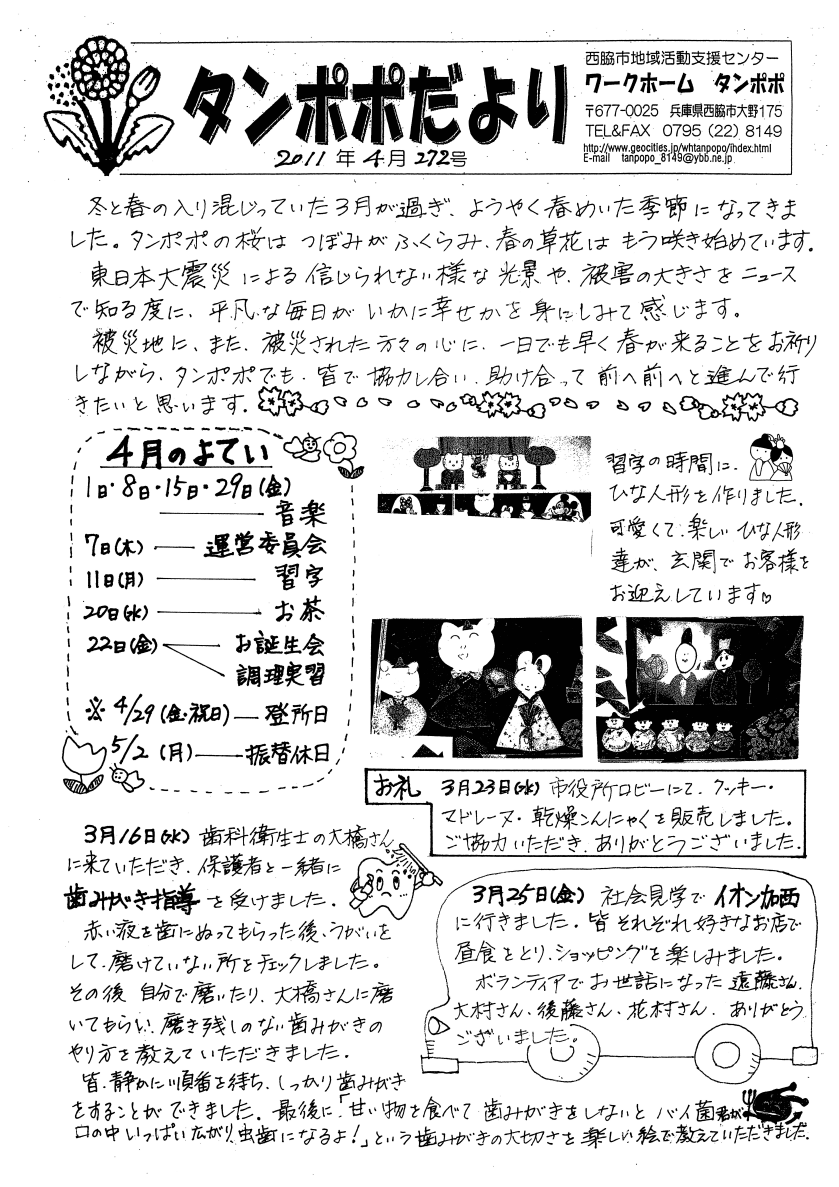 タンポポだより
2011年4月272号
西脇市地域活動支援センター
ワークホーム タンポポ
〒677-0025 兵庫県西脇市大野175
TEL&FAX 0795(22)8149
http://www.geocities.jp/whtanpopo/index.html
E-mail tanpopo_8149@ybb.ne.jp
冬と春の入り混じっていた3月が過ぎ、ようやく春めいた季節になってきま
した。タンポポの桜は つぼみが ふくらみ、春の草花は もう咲き始めています。
東日本大震災による信じられない様な光景や、被害の大きさをニュース
で知る度に、平凡な毎日が いかに幸せかを身にしみて感じます。
被災地に、また、被災された方々の心に、一日でも早く春が来ることをお祈り
しながら、タンポポでも、皆で協力し合い、助け合って前へ前へと進んで行
きたいと思います。
4月のよてい
1日・8日・15日・29日(金)
――音楽
7日(木)――運営委員会
11日(月)――習字
20日(水)――お茶
22日(金)――お誕生会
調理実習
※4/29(金・祝日)―登所日
5/2(月)――振替休日
習字の時間に、
ひな人形を作りました。
可愛くて、楽しいひな人形
達が、玄関でお客様を
お迎えしています♡
お礼 3月23日(水)市役所ロビーにて、クッキー・
マドレーヌ・乾燥こんにゃくを販売しました。
ご協力いただき、ありがとうございました。
3月16日(水)歯科衛生士の大橋さん
に来ていただき、保護者と一緒に
歯みがき指導を受けました。
赤い液を歯にぬってもらった後、うがいを
して、磨けていない所をチェックしました。
その後 自分で磨いたり、大橋さんに磨
いてもらい、磨き残しのない歯みがきの
やり方を教えていただきました。
皆、静かに順番を待ち、しっかり歯みがき
をすることができました。最後に「甘い物を食べて歯みがきをしないとバイ菌君が
口の中いっぱい広がり虫歯になるよ!」という歯みがきの大切さを楽しい絵で教えていただきました。
3月25日(金)社会見学でイオン加西
に行きました。皆それぞれ好きなお店で
昼食をとり、ショッピングを楽しみました。
ボランティアでお世話になった遠藤さん、
大村さん、後藤さん、花村さん、ありがとう
ございました。